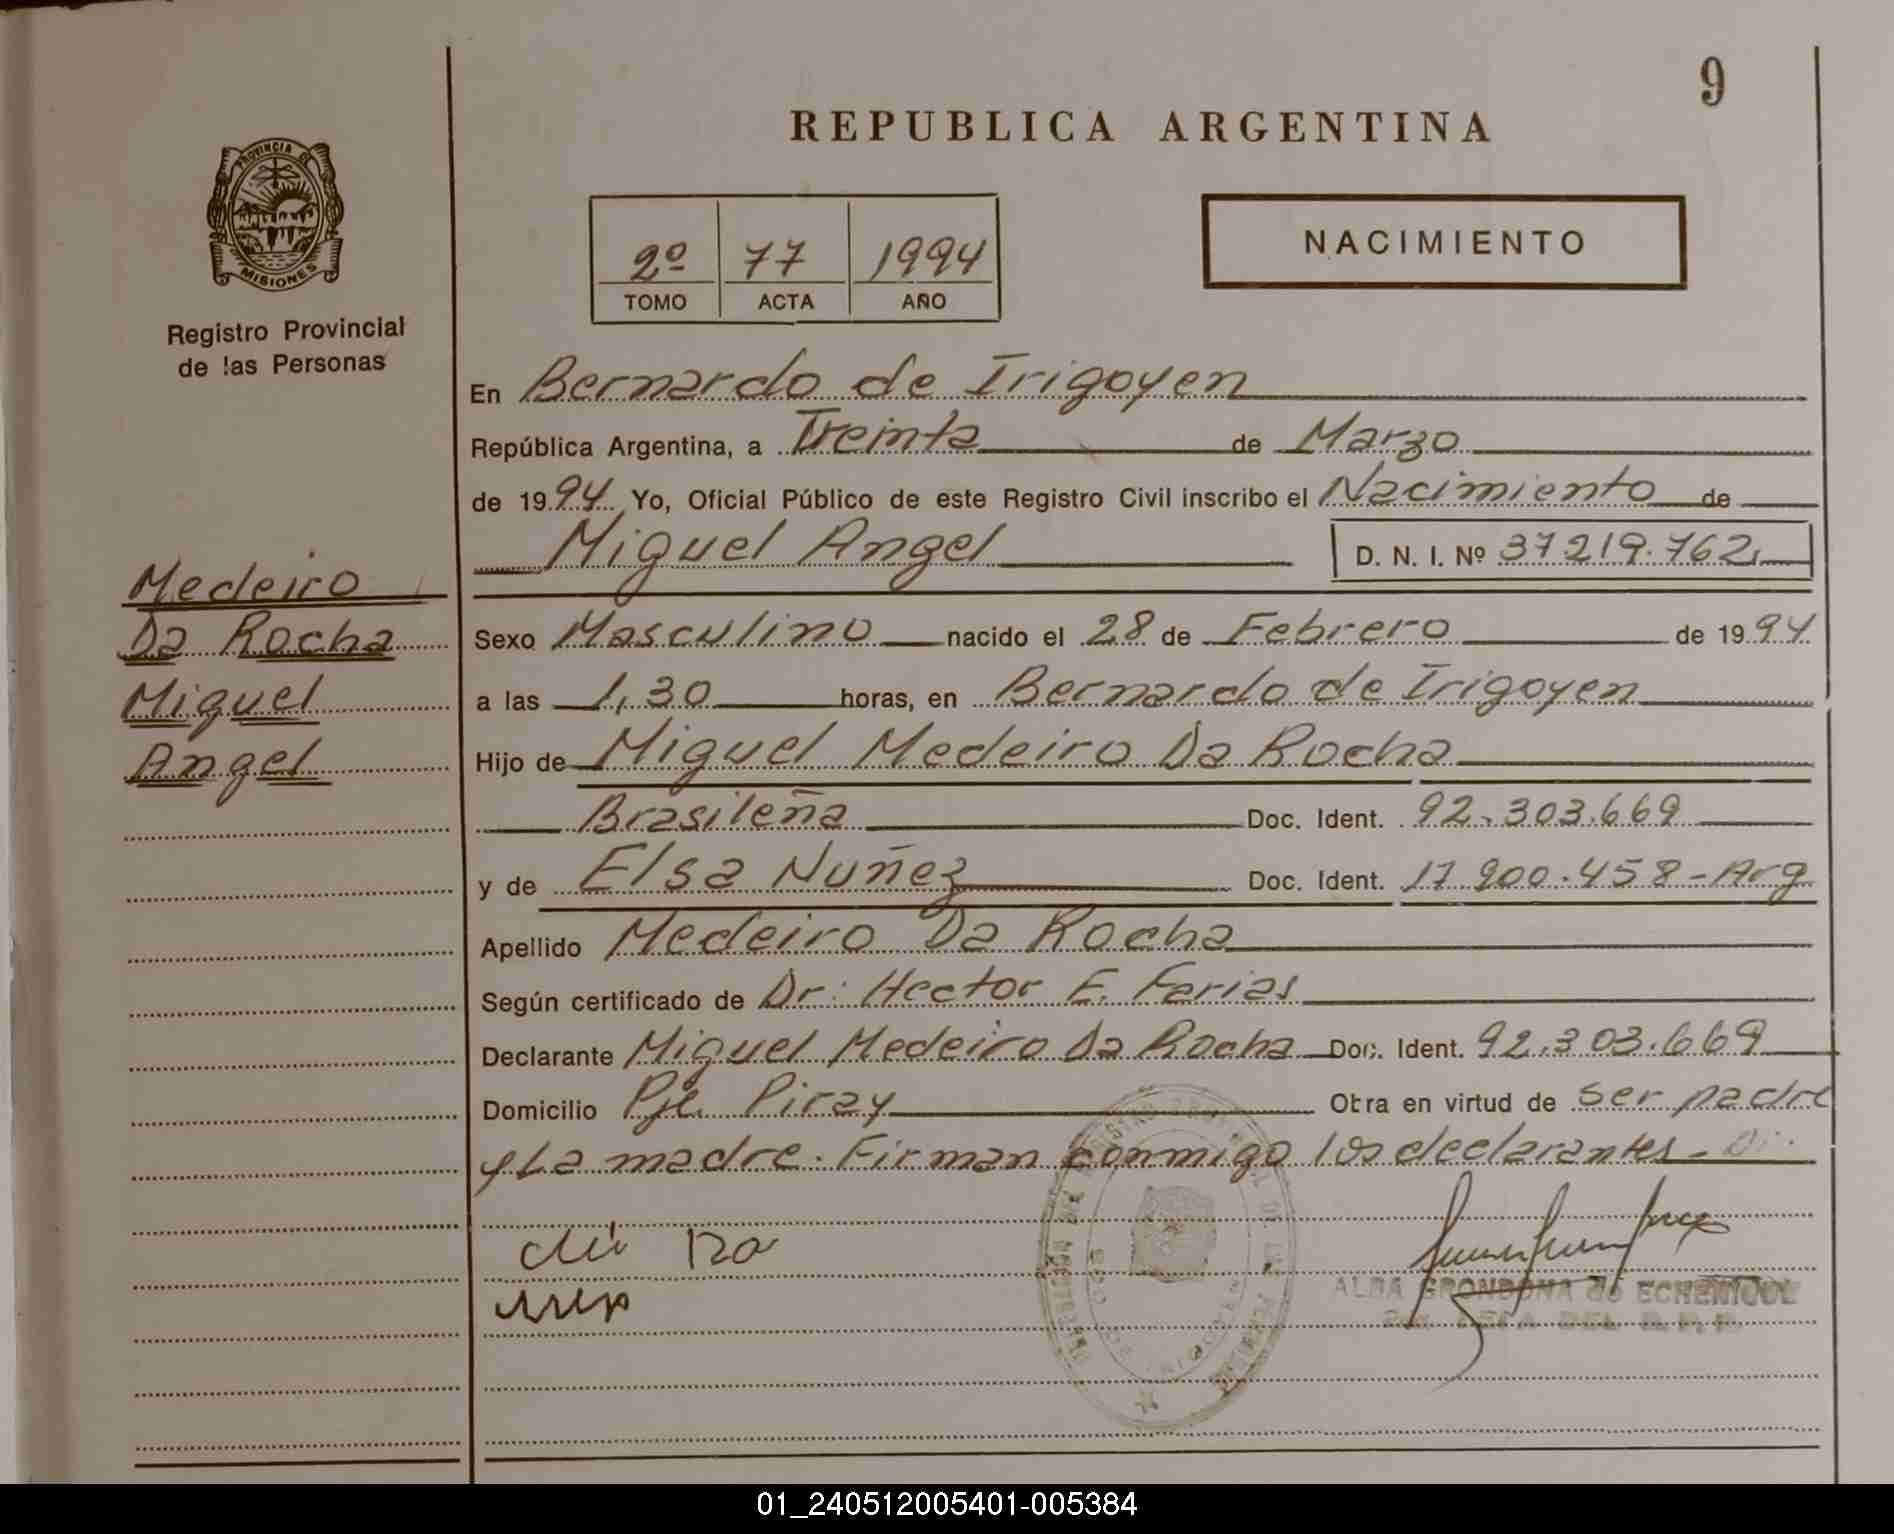 9
REPUBLICA ARGENTINA
PROVINCIA DE
MISIONES
Registro Provincial
de las Personas
2º 77 1994
TOMO ACTA AÑO
NACIMIENTO
En Bernardo de Irigoyen
República Argentina, a Treinta de Marzo
de 1994 Yo, Oficial Público de este Registro Civil inscribo el Nacimiento de
Miguel Angel D. N. I. Nº 37219.762
Medeiro
Da Rocha
Miguel
Angel
Sexo Masculino nacido el 28 de Febrero de 1994
a las 1,30 horas, en Bernardo de Irigoyen
Hijo de Miguel Medeiro Da Rocha
Brasileña Doc. Ident. 92.303.669
y de Elsa Nuñez Doc. Ident. 17.900.458-Arg
Apellido Medeiro Da Rocha
Según certificado de Dr: Hector E. Farias
Declarante Miguel Medeiro Da Rocha Doc. Ident. 92.303.669
Domicilio Pje. Piray Obra en virtud de ser padre
y La madre. Firman conmigo los declarantes-
ALBA GRONDONA de ECHENIQUE
01_240512005401-005384